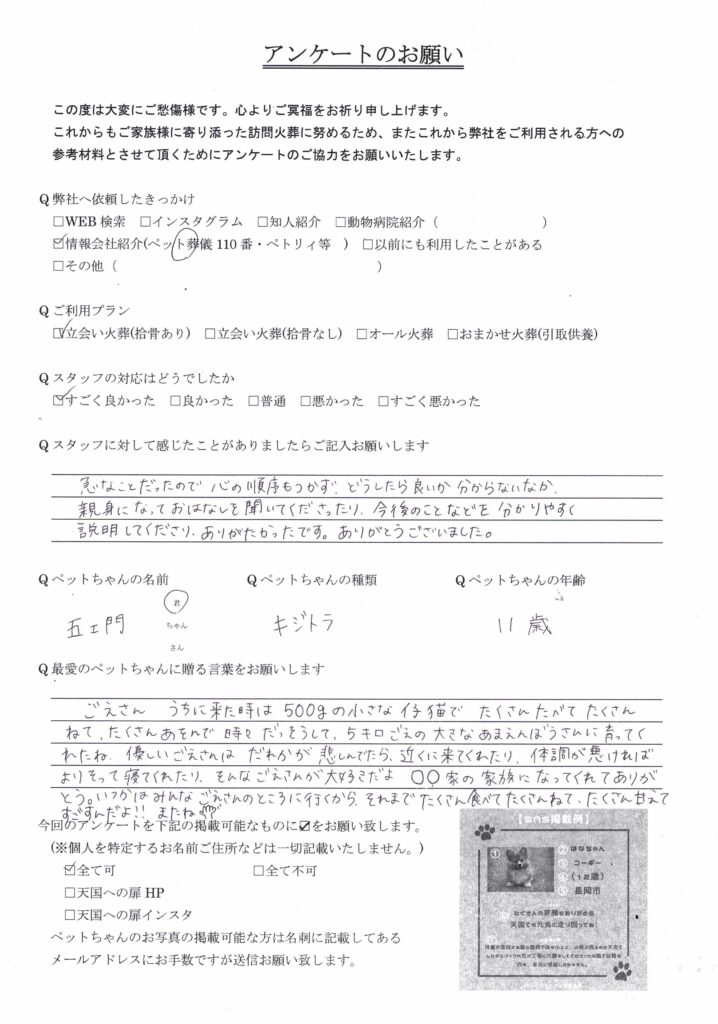 アンケートのお願い
この度は大変にご愁傷様です。心よりご冥福をお祈り申し上げます。
これからもご家族様に寄り添った訪問火葬に努めるため、またこれから弊社をご利用される方への
参考材料とさせて頂くためにアンケートのご協力をお願いいたします。
Q 弊社へ依頼したきっかけ
□WEB 検索 □インスタグラム □知人紹介 □動物病院紹介（ ）
☑情報会社紹介(ペット葬儀 110 番・ペトリィ等 ） □以前にも利用したことがある
□その他（ ）
Q ご利用プラン
☑立会い火葬(拾骨あり) □立会い火葬(拾骨なし) □オール火葬 □おまかせ火葬(引取供養)
Q スタッフの対応はどうでしたか
☑すごく良かった □良かった □普通 □悪かった □すごく悪かった
Q スタッフに対して感じたことがありましたらご記入お願いします
急なことだったので 心の順序もつかず、どうしたら良いか 分からないなか、
親身になって おはなしを聞いてくださったり、今後のことなどを 分かりやすく
説明してくださり、ありがたかったです。ありがとうございました。
Q ペットちゃんの名前 Q ペットちゃんの種類 Q ペットちゃんの年齢
君
五ェ門 ちゃん キジトラ 11歳
さん
Q 最愛のペットちゃんに贈る言葉をお願いします
ごえさん うちに来た時は 500gの小さな仔猫で たくさんたべて たくさん
ねて、たくさんあそんで 時々 だっそうして、5キロごえの 大きなあまえんぼうさんに 育ってく
れたね。優しいごえさんは だれかが 悲しんでたら、近くに来てくれたり、体調が悪ければ
よりそって 寝てくれたり、そんなごえさんが大好きだよ ○○家の家族になってくれてありが
とう。いつかはみんなごえさんのところに行くから、それまで たくさん食べてたくさんねて、たくさん甘えて
すごすんだよ!! またね
今回のアンケートを下記の掲載可能なものに☑をお願い致します。
(※個人を特定するお名前ご住所などは一切記載いたしません。)
☑全て可 □全て不可
□天国への扉 HP
□天国への扉インスタ
ペットちゃんのお写真の掲載可能な方は名刺に記載してある
メールアドレスにお手数ですが送信お願い致します。
【SNS掲載例】
① ② はなちゃん
③ コーギー
④ (12歳)
⑤ 長岡市
たくさんの笑顔をありがとう
天国でも元気に走り回ってね